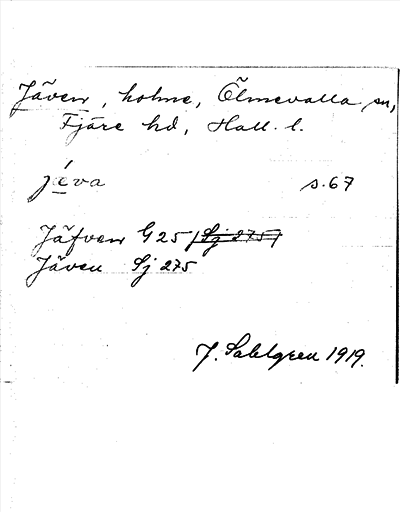 Jäven, holme, Ölmevalla sn,
Fjäre hd, Hall. l.
jéva s. 67
Jäfven G 25 (Sj 275)
Jäven Sj 275
J. Sahlgren 1919.